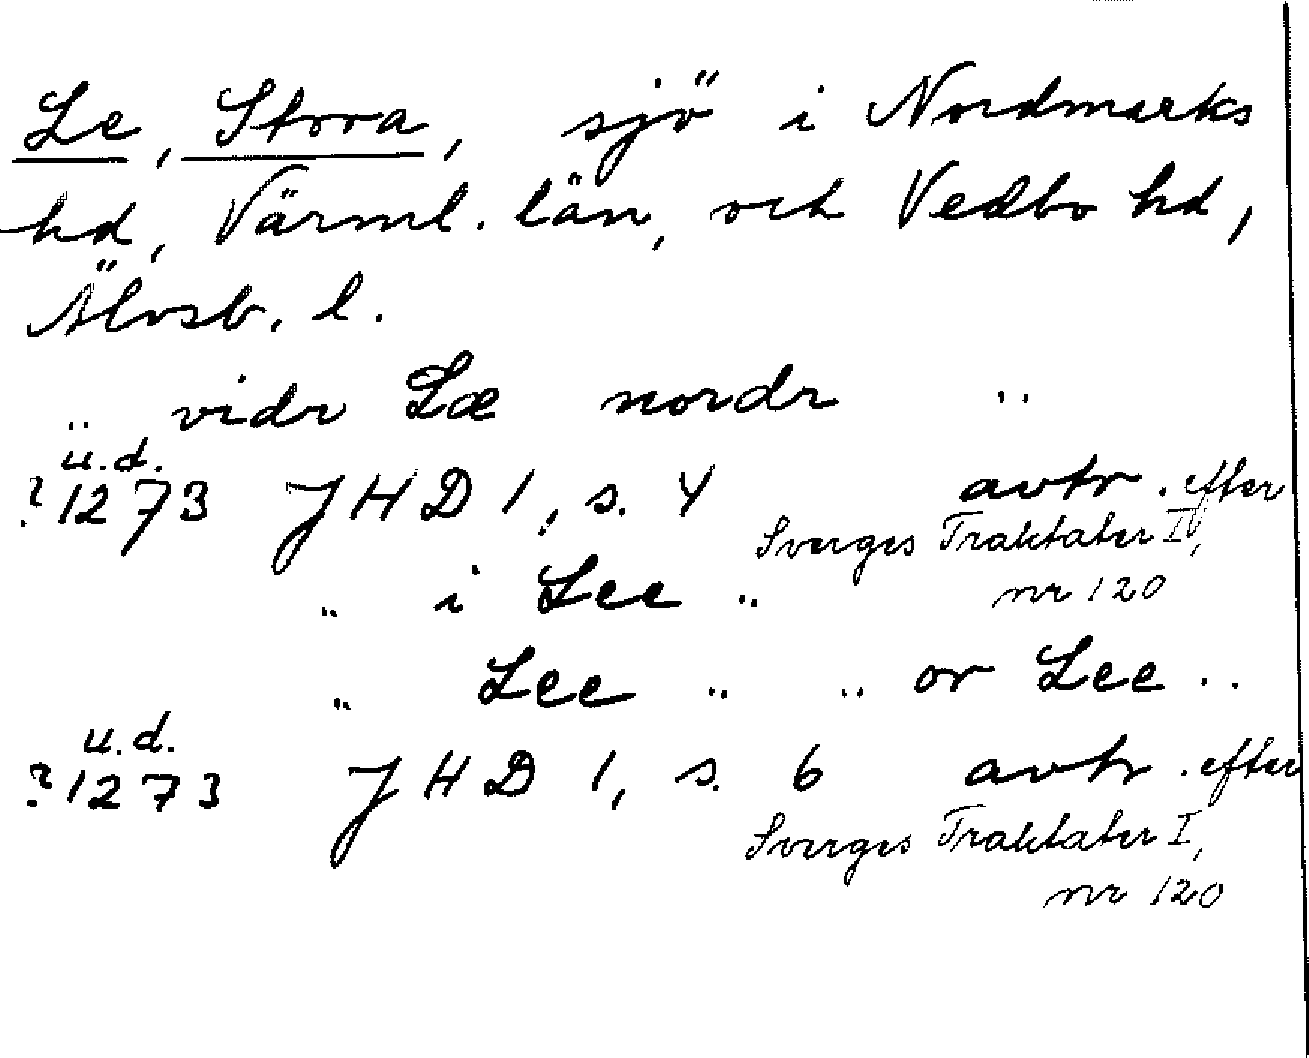 Le, Stora, sjö i Nordmarks
hd, Värml. län, och Vedbo hd,
Älvsb. l.
.. vidr Læ nordr ..
u.d.
?1273 JHD 1, s. 4 avtr. efter
Sverges Traktater I,
nr 120
.. i Lee ..
.. Lee .. .. or Lee ..
u.d.
?1273 JHD 1, s. 6 avtr. efter
Sverges Traktater I,
nr 120